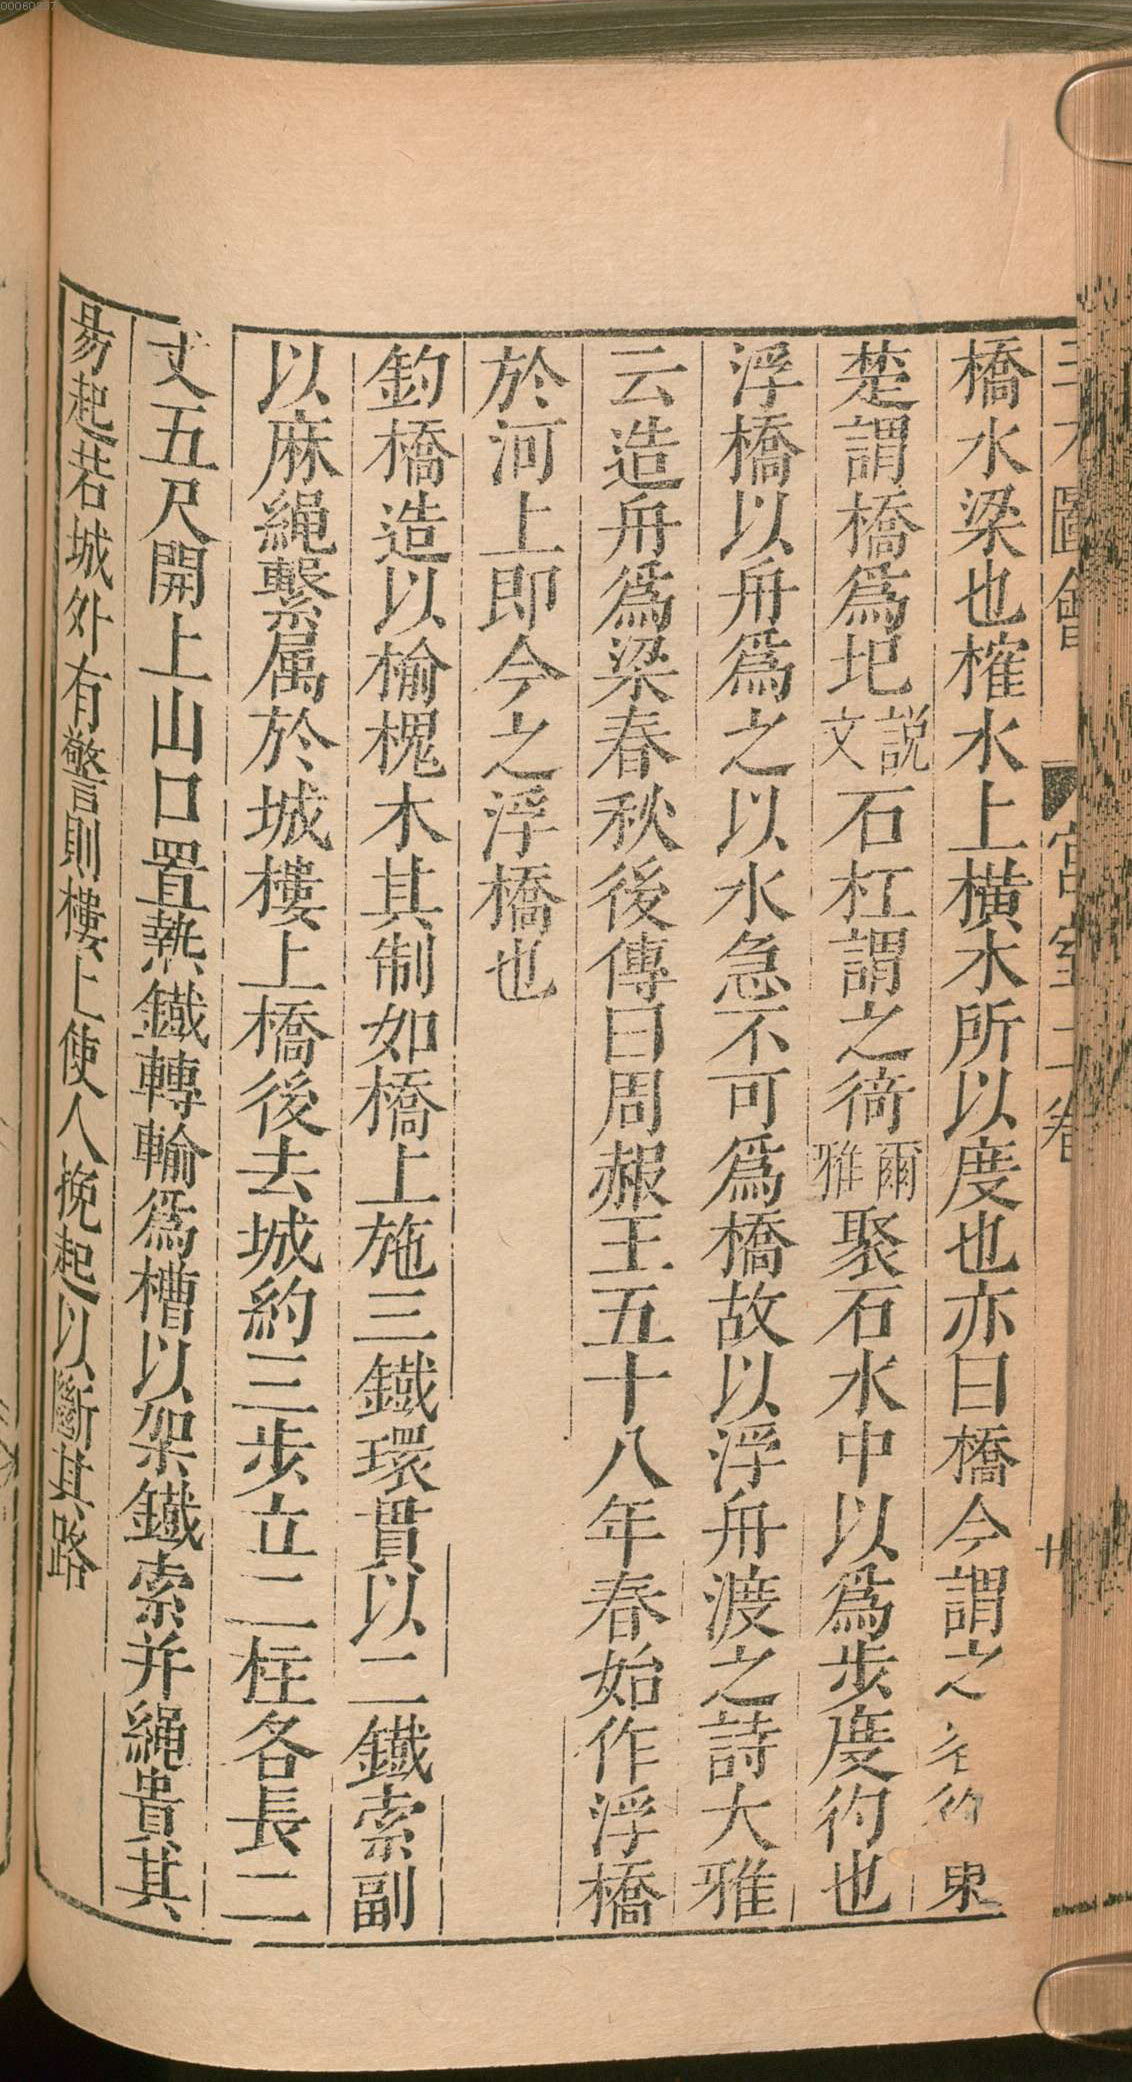 橋水梁也榷水上橫木所以度也亦曰橋今謂之
彴東
楚謂橋爲圯說文石杠謂之徛爾雅聚石水中以爲步度彴也
浮橋以舟爲之以水急不可爲橋故以浮舟渡之詩大雅
云造舟爲梁春秋後傳曰周赧王五十八年春始作浮橋
於河上即今之浮橋也
釣橋造以榆槐木其制如橋上施三鐵環貫以二鐵索副
以麻繩繫属於城樓上橋後去城約三步立二柱各長二
丈五尺開上山口置熱鐵轉輪爲槽以架鐵索并繩貴其
易起若城外有警則樓上使人挽起以斷其路